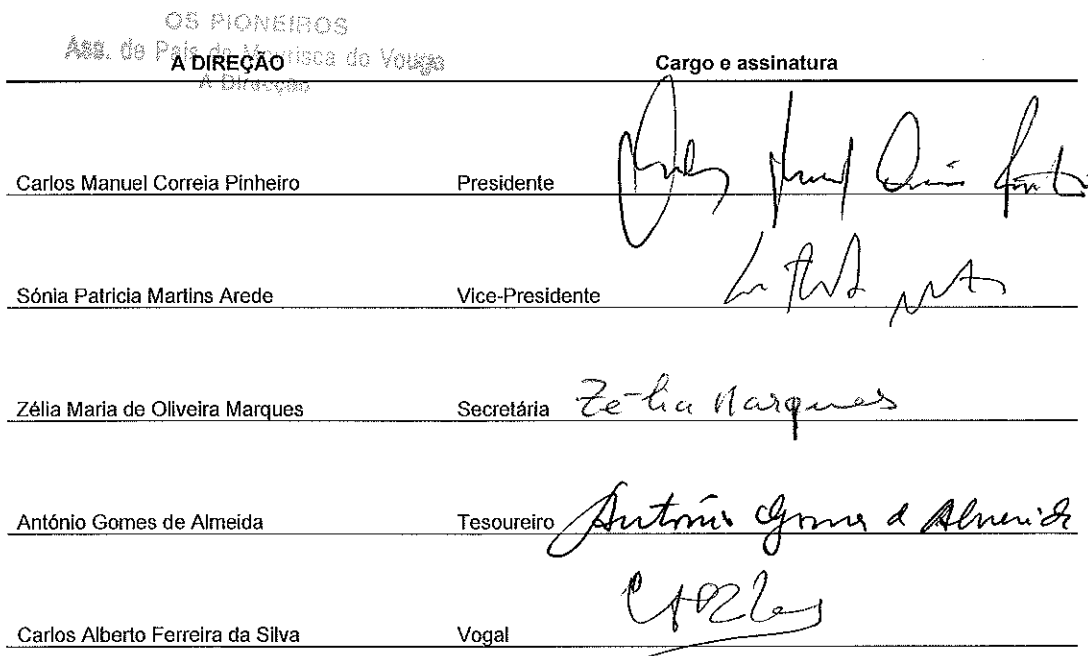 OS PIONEIROS
Ass. de Pais de Mourisca do Vouga
A Direcção
A DIREÇÃO Cargo e assinatura
Carlos Manuel Correia Pinheiro Presidente
Sónia Patricia Martins Arede Vice-Presidente
Zélia Maria de Oliveira Marques Secretária Zélia Marques
António Gomes de Almeida Tesoureiro António Gomes d Almeida
Carlos Alberto Ferreira da Silva Vogal